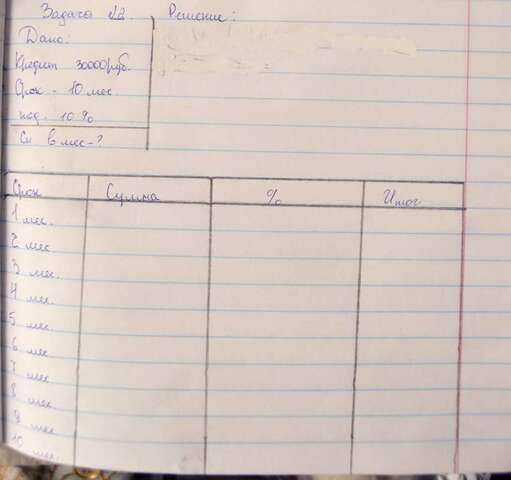 Задача №2. Решение:
Дано:
Кредит 30000 руб.
Срок - 10 мес.
под 10%
Си в мес - ?
Срок Сумма % Итог
1 мес.
2 мес
3 мес.
4 мес.
5 мес.
6 мес
7 мес.
8 мес.
9 мес
10 мес.